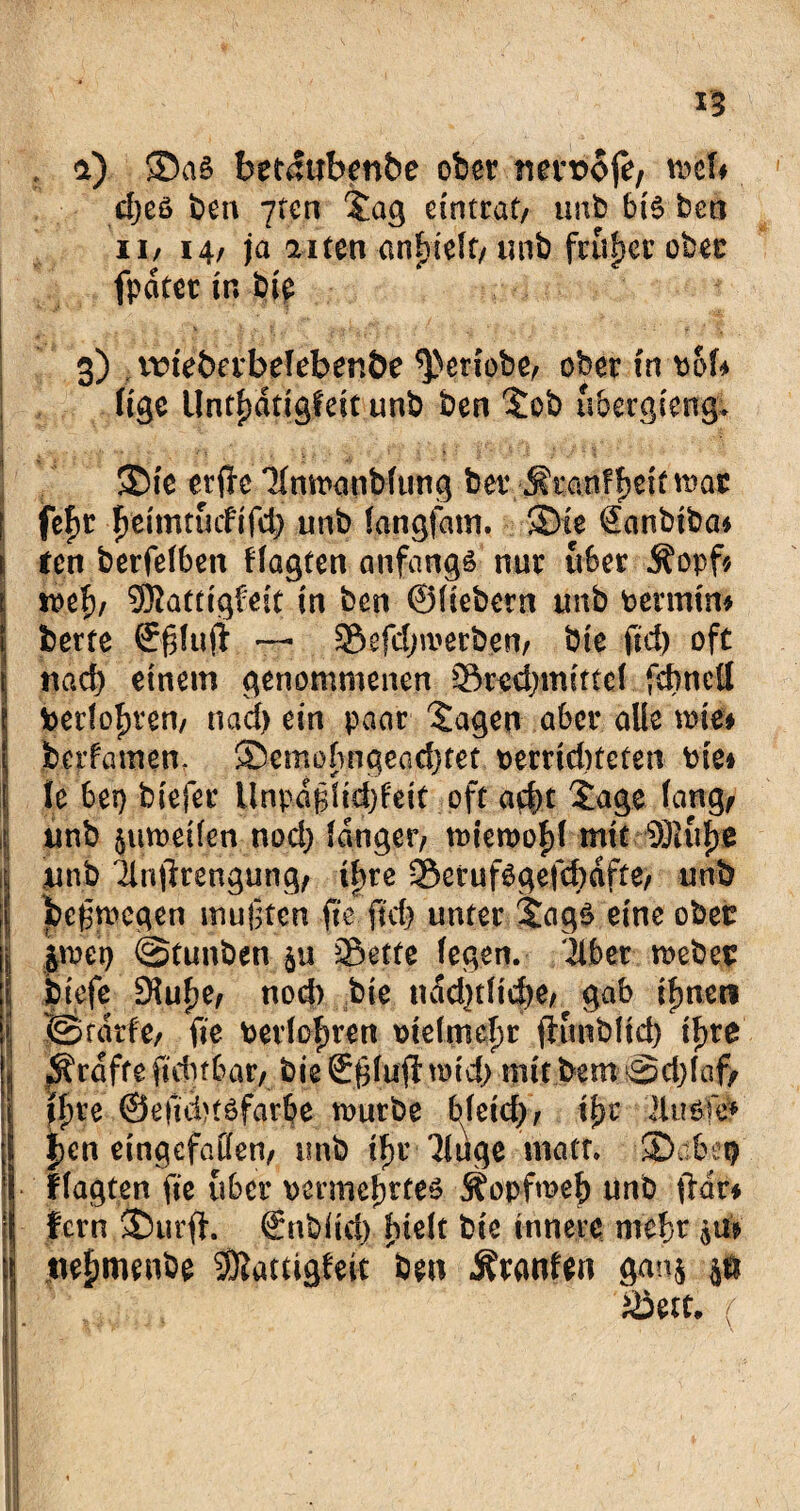 13
2) Das betäubende oder nervöse, wel⸗
ches den 7ten Tag eintrat, und bis den
11, 14, ja 21ten anhielt, und früher oder
später in die
3) wiederbelebende Periode, oder in völ⸗
lige Unthätigkeit und den Tod übergieng.
Die erste Anwandlung der Krankheit war
sehr heimtückisch und langsam. Die Candida⸗
ten derselben klagten anfangs nur über Kopf⸗
weh, Mattigkeit in den Gliedern und vermin⸗
derte Eßlust — Beschwerden, die sich oft
nach einem genommenen Brechmittel schnell
verlohren, nach ein paar Tagen aber alle wie⸗
derkamen. Demohngeachtet verrichteten vie⸗
le bey dieser Unpäßlichkeit oft acht Tage lang,
und zuweilen noch länger, wiewohl mit Mühe
und Anstrengung, ihre Berufsgeschäfte, und
deßwegen mußten sie sich unter Tags eine oder
zwey Stunden zu Bette legen. Aber weder
diese Ruhe, noch die nächtliche, gab ihnen
Stärke, sie verlohren vielmehr stündlich ihre
Kräfte sichtbar, die Eßlust wich mit dem Schlaf,
ihre Gesichtsfarbe wurde bleich, ihr Ausse⸗
hen eingefallen, und ihr Auge matt. Dabey
klagten sie über vermehrtes Kopfweh und stär⸗
kern Durst. Endlich hielt die innere mehr zu⸗
nehmende Mattigkeit den Kranken ganz zu
Bett.